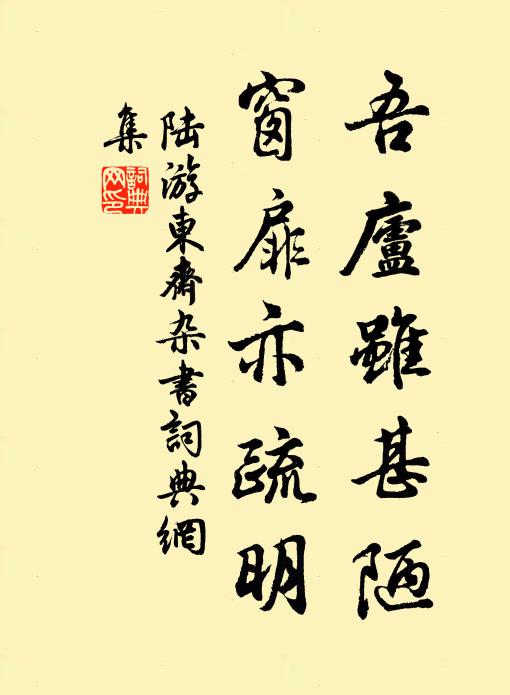 吾廬雖甚陋
窗扉亦疏明
陆游東齋杂書詞典網
集
詞典网印